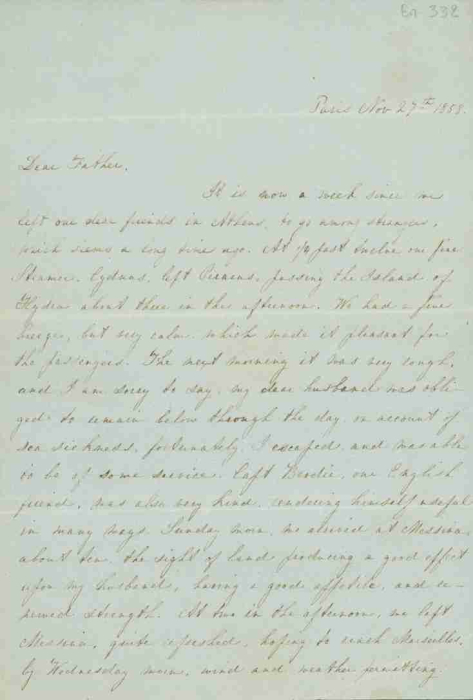 Bn 338
Paris Nov 27th 1858.
Dear Father.
It is now a week since we
left our dear friends in Athens, to go among strangers,
which seems a long time ago. At ½ past twelve our fine
Steamer, Cydnus, left Piraeus, passing the Island of
Hydra about three in the afternoon. We had a fine
breeze, but very calm which made it pleasant for
the passengers. The next morning it was very rough,
and I am sorry to say, my dear husband was obli-
ged to remain below through the day, on account of
sea sickness, fortunately, I escaped, and was able
to be of some service. Capt Brodie, our English
friend, was also very kind, rendering himself useful
in many ways. Sunday morn, we arrived at Messina,
about ten, the sight of land producing a good effect
upon my husband, having a good appetite, and re-
newed strength. At two in the afternoon, we left
Messina, quite refreshed, hoping to reach Marseilles,
by Wednesday morn, wind and weather permitting.